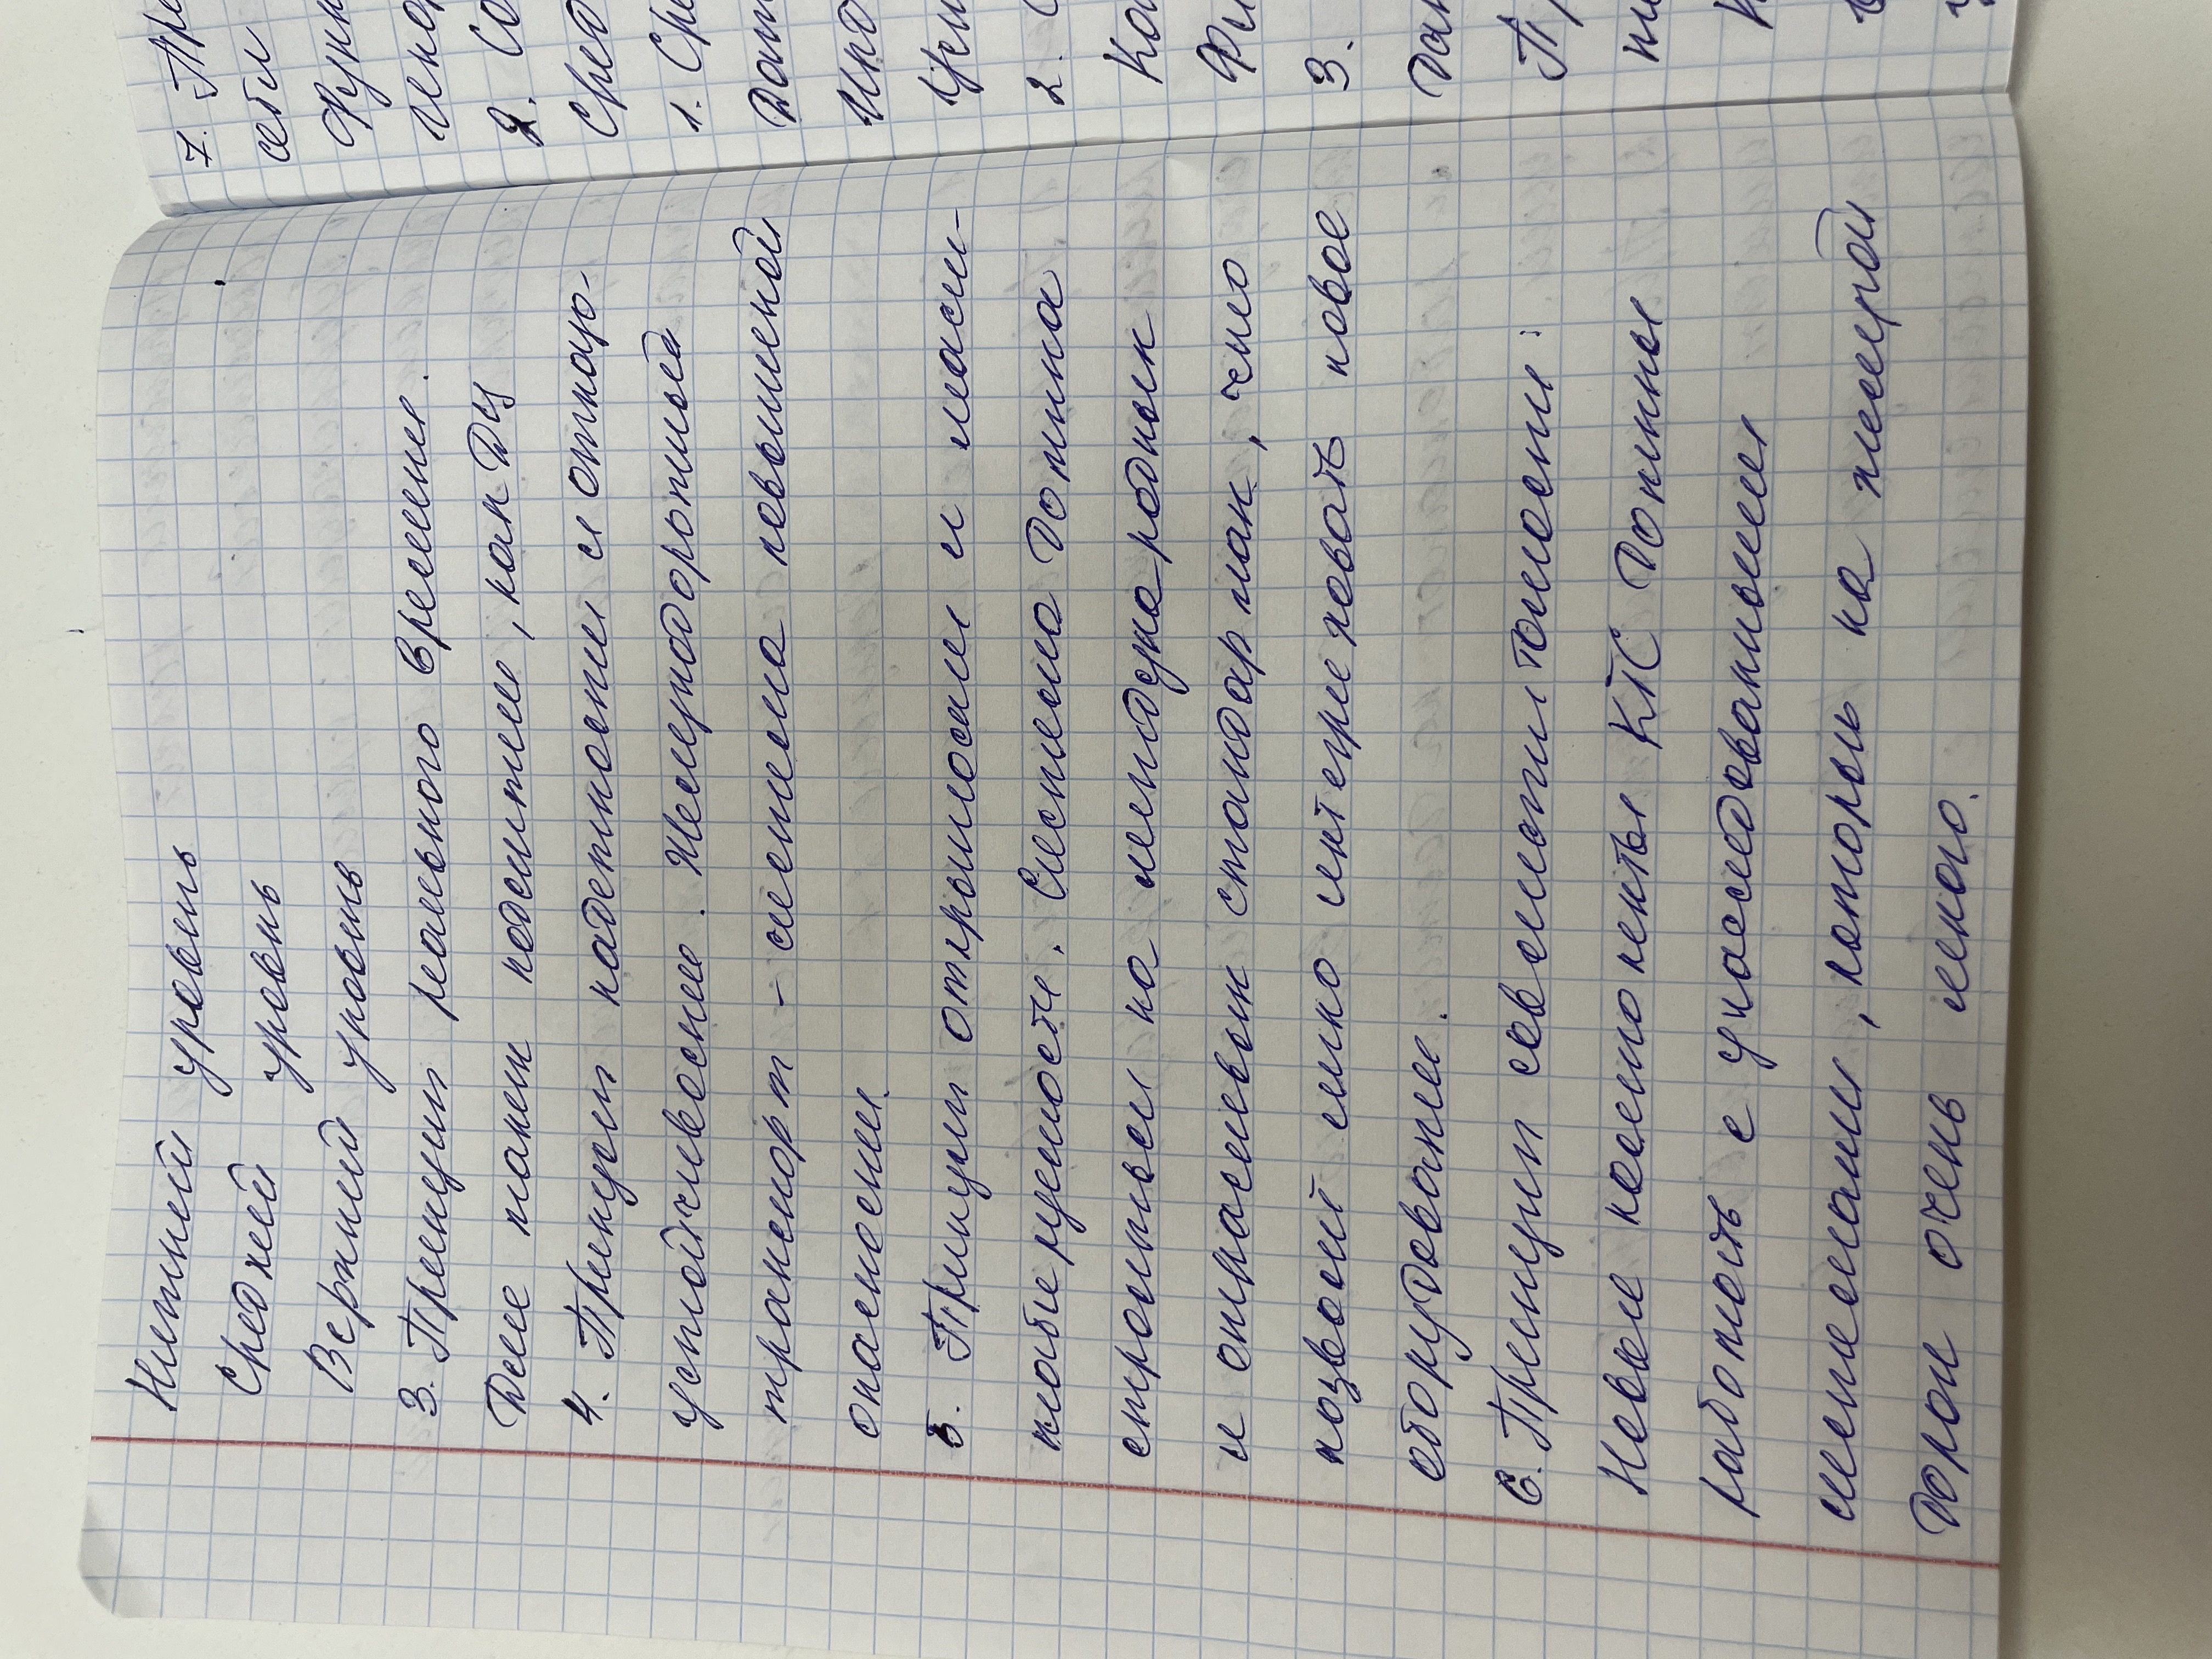 Нижний уровень
Средний уровень
Верхний уровень
3. Принцип реального времени.
Такие понятия, как ДЦ
4. Принцип надежности и отказо-
устойчивости. Железнодорожный
транспорт - система повышенной
опасности.
5. Принцип открытости и масш-
табируемости. Система должна
строиться на международных
и отраслевых стандартах, что
позволит легко интегрировать новое
оборудование.
6. Принцип совместимости:
Новые компоненты КТС должны
работать с унаследованными
системами, которых на железной
дороге очень много.
7. Пре
себя
Функ
генер
2. Со
Сред
1. Сре
Дат
Инд
2.
Ка
3.